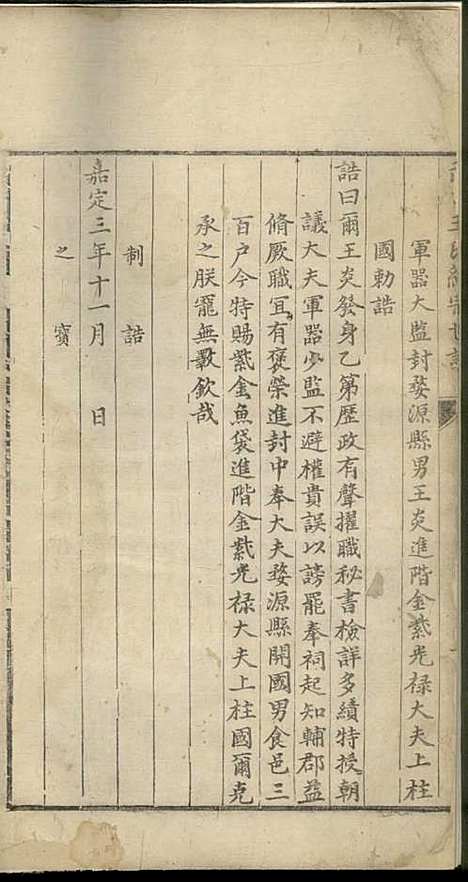 軍器大監封婺源縣男王炎進階金紫光禄大夫上柱
國勅誥
誥曰爾王炎發身乙第歷政有聲擢職秘書檢詳多績特授朝
議大夫軍器少監不避權貴誤以謗罷奉祠起知輔郡益
脩厥職宜有褒榮進封中奉大夫婺源縣開國男食邑三
百户今特賜紫金魚袋進階金紫光禄大夫上柱國爾克
承之朕寵無斁欽哉
制誥
嘉定三年十一月 日
之寳